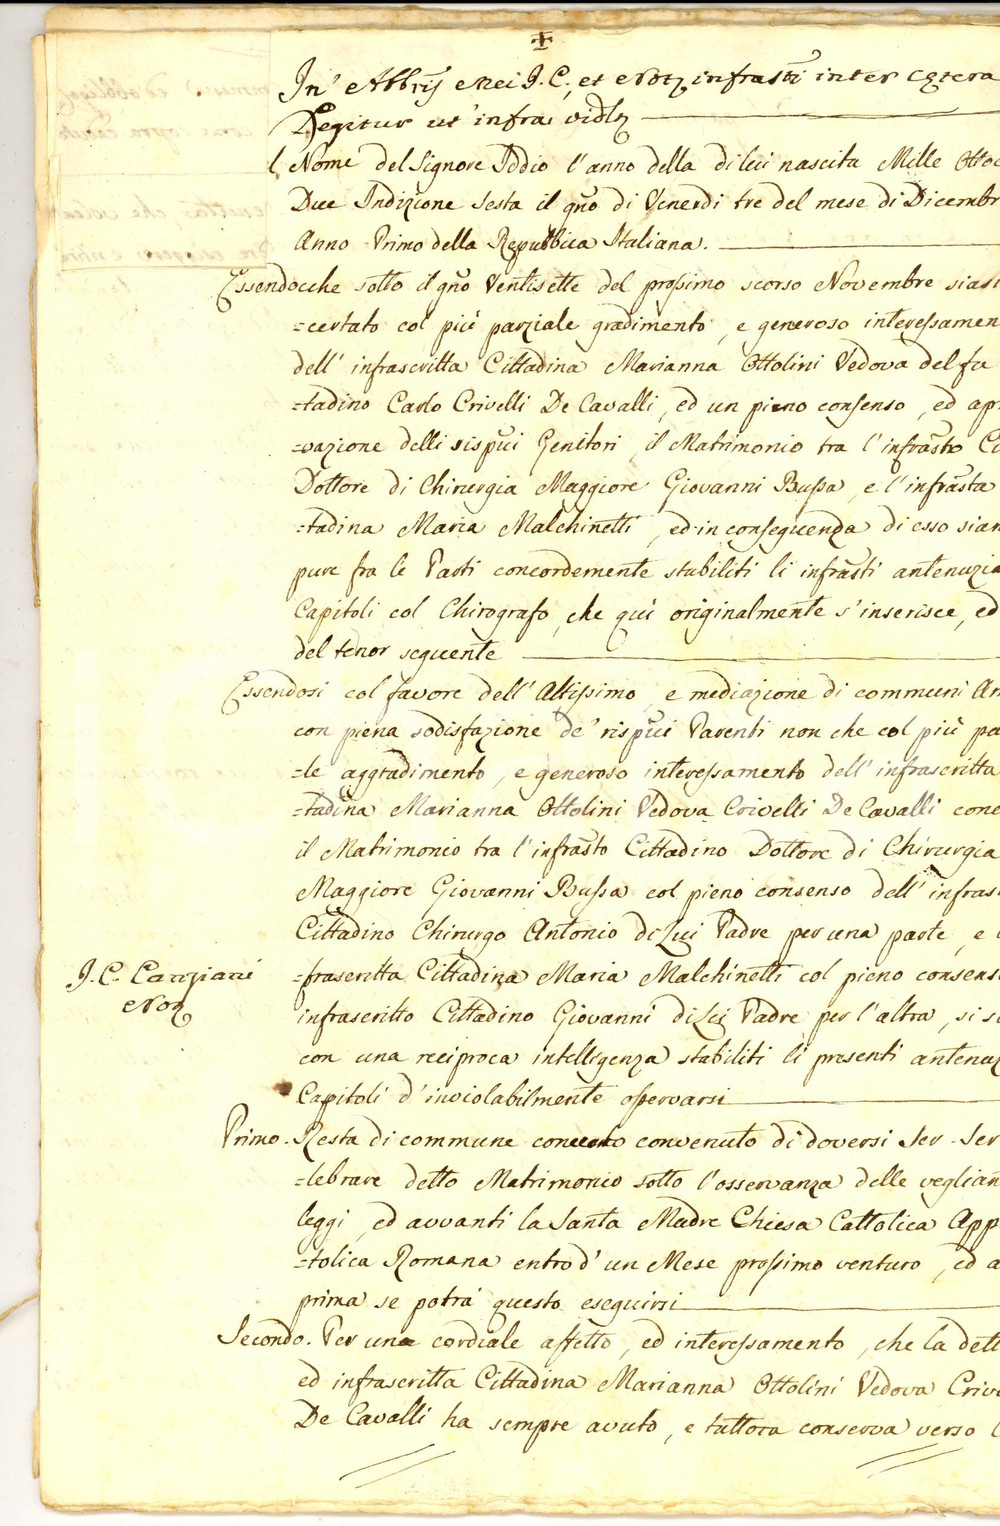 In Abbrīs Mei J. C., et Notȝ infrasti inter Cetera
Legitur ut infra vidlȝ
l Nome del Signore Iddio l'anno della di lui nascita Mille Ottoc
Due Indizione Sesta il gño di Venerdi tre del mese di Dicembr
Anno Primo della Repubblica Italiana.
Essendocche sotto il gño Ventisette del prossimo scorso Novembre siasi
=certato col più parziale gradimento, e generoso interessamen
dell' infrascritta Cittadina Marianna Ottolini Vedova del fu
=tadino Carlo Crivelli De Cavalli, ed un pieno consenso, ed apr
=vazione delli rispūi Genitori, il Matrimonio tra l'infrāsto Ci
Dottore di Chirurgia Maggiore Giovanni Bussa, e l'infrāsta
=tadina Maria Malchinetti, ed in conseguenza di esso sian
pure fra le Parti concordemente stabiliti li infrāsti antenuzia
Capitoli col Chirografo, che quì originalmente s'inserisce, ed
del tenor seguente
Essendosi col favore dell'Altissimo, e mediazione di communi Am
con piena sodisfazione de' rispūi Parenti non che col più pa
=le aggradimento, e generoso interessamento dell' infrascritta
=tadina Marianna Ottolini Vedova Crivelli De Cavalli conc
il Matrimonio tra l'infrāsto Cittadino Dottore di Chirurgia
Maggiore Giovanni Bussa col pieno consenso dell' infrasc
Cittadino Chirurgo Antonio di Lui Padre per una parte, e
J. C. Canziani
Noȝ
=frascritta Cittadina Maria Malchinetti col pieno consenso
infrascritto Cittadino Giovanni di Lei Padre per l'altra, si so
con una reciproca intelligenza stabiliti li presenti antenuz
Capitoli d'inviolabilmente osservarsi
Primo. Resta di commune concerto convenuto di doversi Ser-Ser
=lebrare detto Matrimonio sotto l'osservanza delle veglian
leggi, ed avvanti la Santa Madre Chiesa Cattolica App
=tolica Romana entro d'un Mese prossimo venturo, ed a
prima se potrà questo eseguirsi
Secondo. Per una cordiale affetto, ed interessamento, che la dett
ed infrascritta Cittadina Marianna Ottolini Vedova Crive
De Cavalli ha sempre avuto, e tuttora conserva verso l